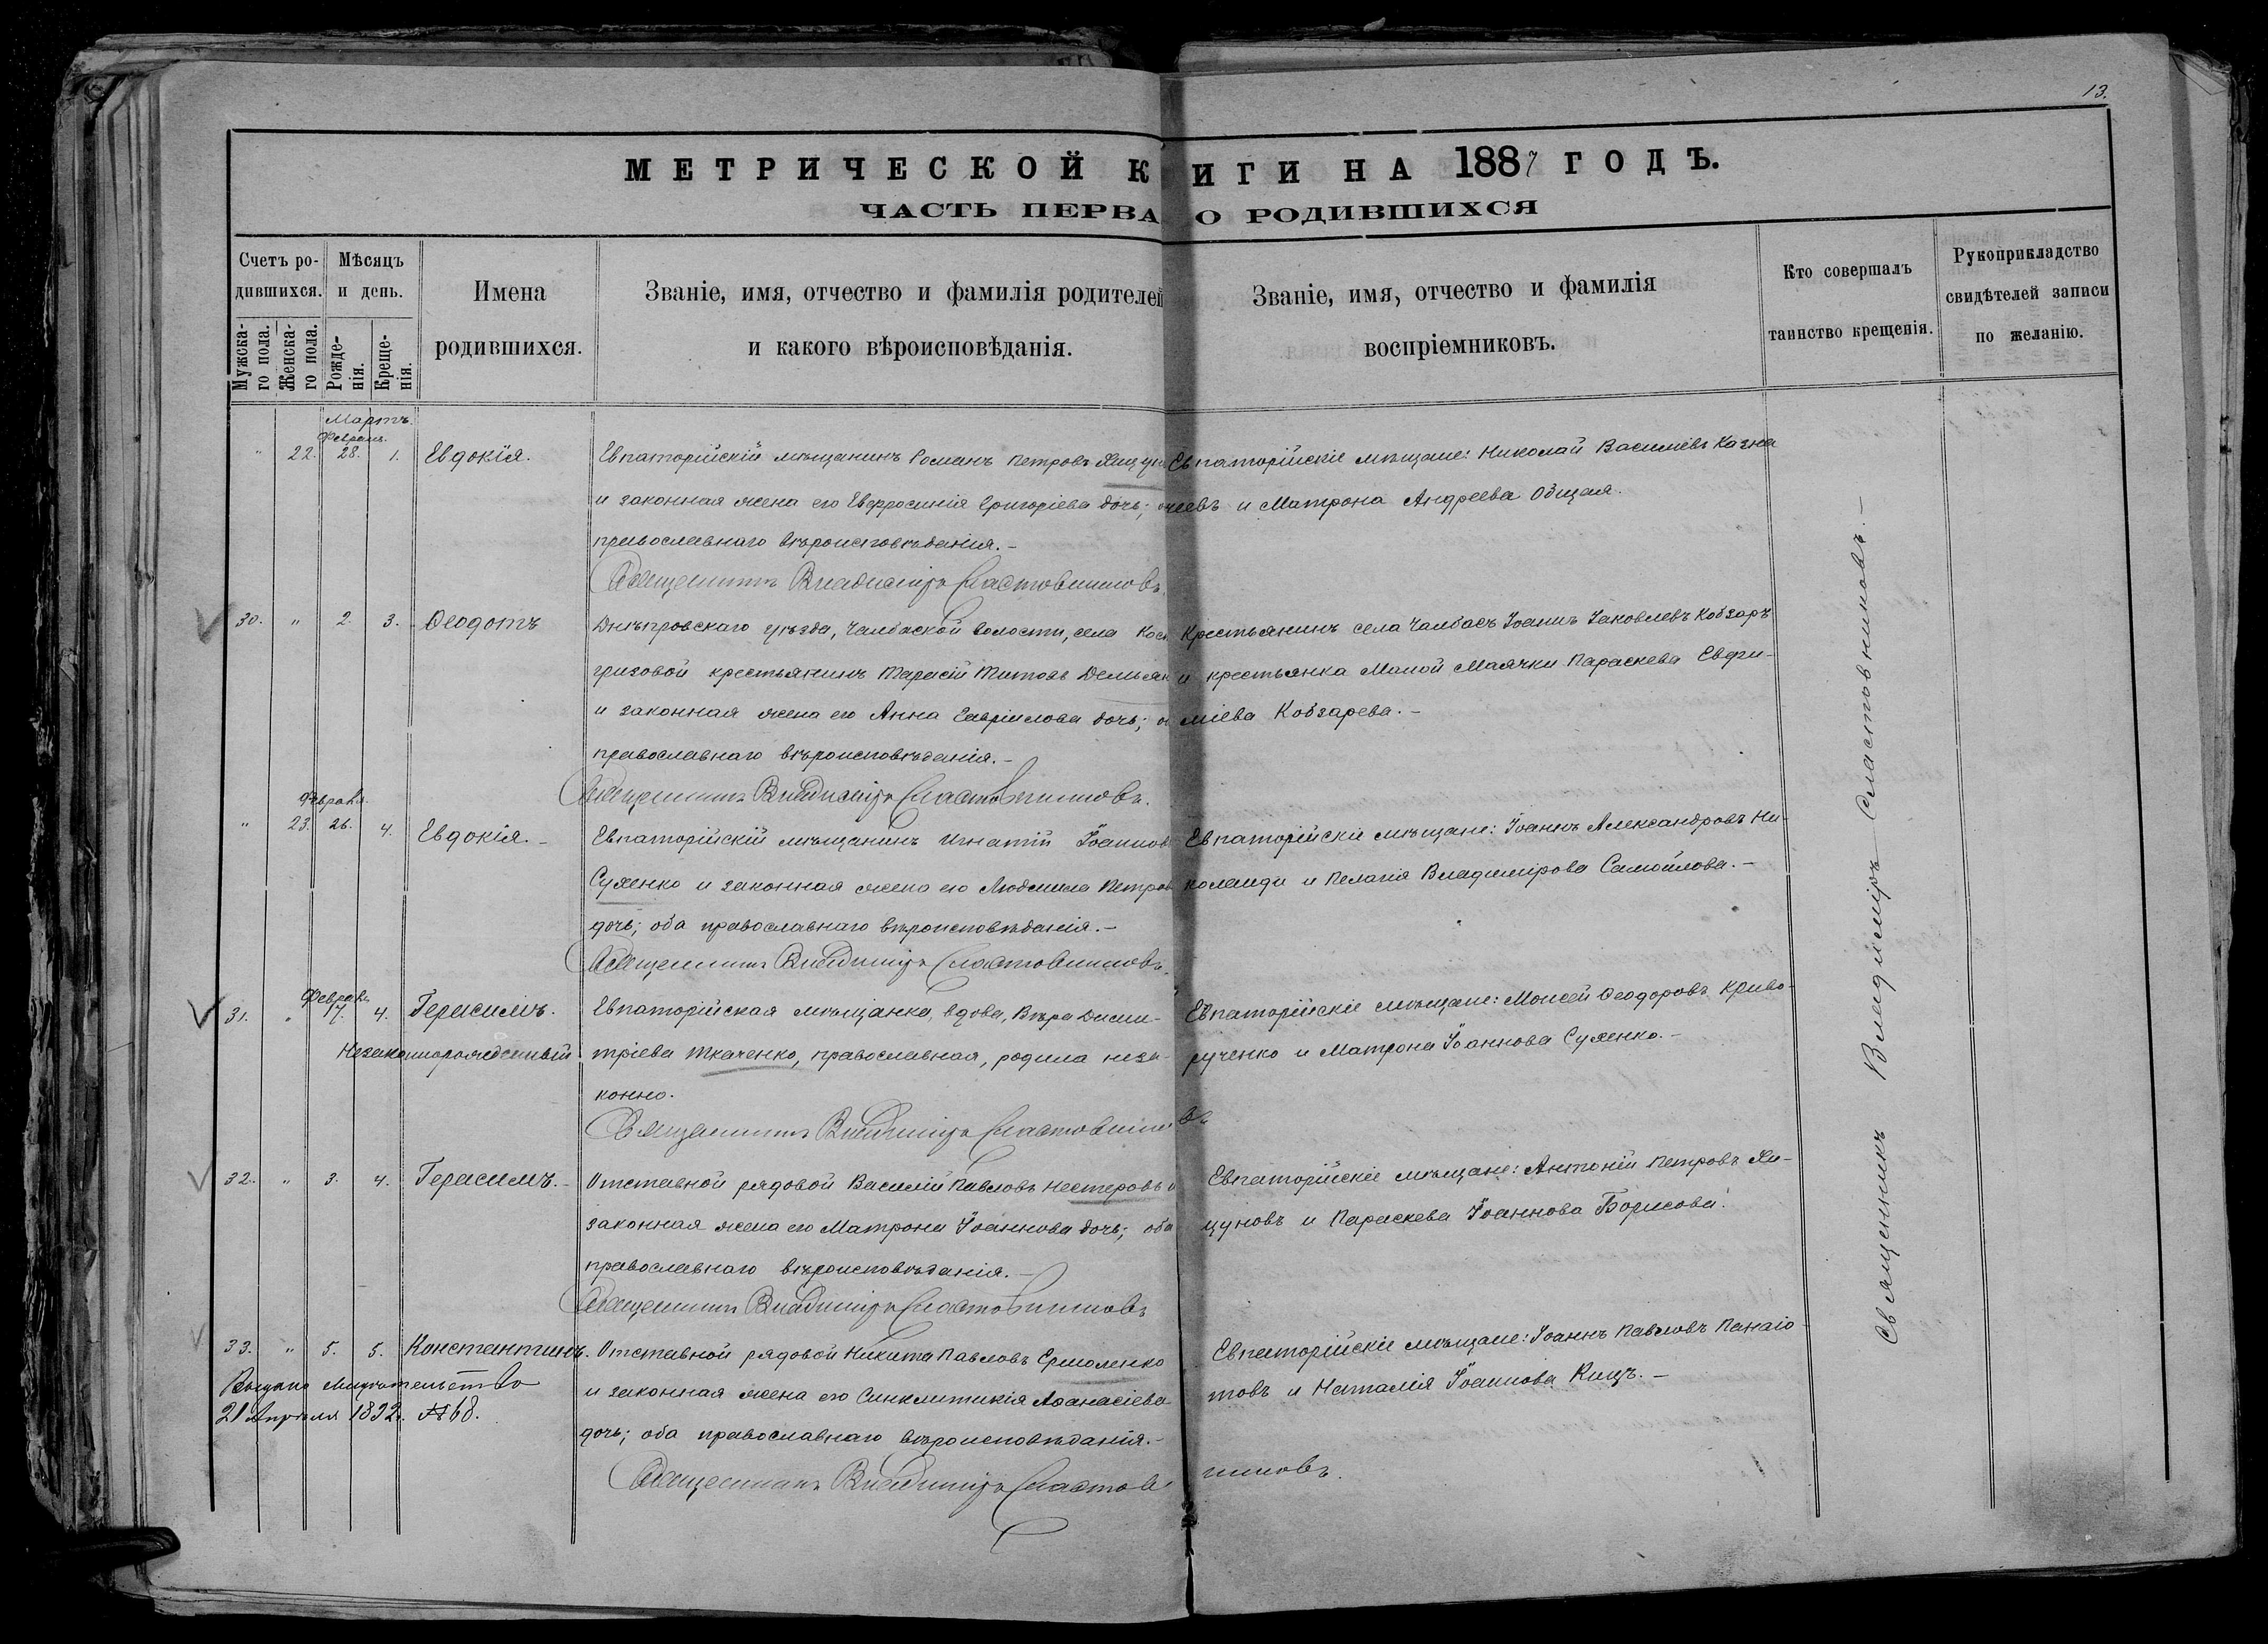 13.
МЕТРИЧЕСКОЙ К ИГИ НА 1887 ГОДЪ.
ЧАСТЬ ПЕРВА О РОДИВШИХСЯ
Счетъ ро-
дившихся.
Мѣсяцъ
и день.
Мужска-
го пола.
Женска-
го пола.
Рожде-
нія.
Креще-
нія.
Имена
родившихся.
Званіе, имя, отчество и фамилія родителей
и какого вѣроисповѣданія.
Званіе, имя, отчество и фамилія
воспріемниковъ.
Кто совершалъ
таинство крещенія.
Рукоприкладство
свидѣтелей записи
по желанію.
Мартъ.
Феврал.
" 22. 28. 1. Евдокія.
Евпаторійскій мѣщанинъ Романъ Петровъ
и законная жена его Евфросинія Григоріева дочь;
православнаго вѣроисповѣданія.–
Священникъ Владиміръ Сластовниковъ.
Евпаторійскіе мѣщане: Николай Васильевъ Казна
чеевъ и Матрона Андреева Общая.
30. " 2. 3. Ѳеодотъ
Днѣпровскаго уѣзда, Чалбаской волости, села Кос
гризовой крестьянинъ Тарасій Титовъ Демьян
и законная жена его Анна Гавріилова дочь; о
православнаго вѣроисповѣданія.–
Священникъ Владиміръ Сластовниковъ.
Крестьянинъ села Чалбасъ Іоаннъ Іаковлевъ Кобзарь
и крестьянка Малой Маячки Параскева Евфи-
міева Кобзарева.–
Феврал.
" 23. 26. 4. Евдокія.–
Евпаторійскій мѣщанинъ Игнатій Іоаннов
Суженко и законная жена его Людмила Петров
дочь; оба православнаго вѣроисповѣданія.–
Священникъ Владиміръ Сластовниковъ.
Евпаторійскіе мѣщане: Іоаннъ Александровъ Ни-
коланди и Пелагія Владимірова Самойлова.–
Феврал.
31. " 17. 4. Герасимъ.
Незаконнорожденный
Евпаторійская мѣщанка, вдова, Вѣра Дими-
тріева Ткаченко, православная, родила неза-
конно.
Священникъ Владиміръ Сластовниковъ
Евпаторійскіе мѣщане: Моисей Ѳеодоровъ Криво-
рученко и Матрона Іоаннова Суженко.–
32. " 3. 4. Герасимъ.–
Отставной рядовой Василій Павловъ Нестеровъ и
законная жена его Матрона Іоаннова дочь; оба
православнаго вѣроисповѣданія.–
Священникъ Владиміръ Сластовниковъ
Евпаторійскіе мѣщане: Антоній Петровъ Яи-
цуновъ и Параскева Іоаннова Борисова.
33. " 5. 5. Константинъ.
Выдано
21 Апрѣля 1892. №68.
Отставной рядовой Никита Павловъ Ермоленко
и законная жена его Синклитикія Аѳанасіева
дочь; оба православнаго вѣроисповѣданія.–
Священникъ Владиміръ Сластовниковъ.
Евпаторійскіе мѣщане: Іоаннъ Павловъ Панаіо-
товъ и Наталія Іоаннова Кицъ.–
Священникъ Владиміръ Сластовниковъ.–